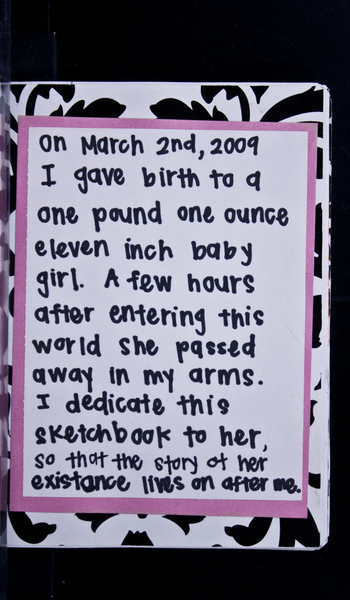 on March 2nd, 2009
I gave birth to a
one pound one ounce
eleven inch baby
girl. A few hours
after entering this
world she passed
away in my arms.
I dedicate this
sketchbook to her,
so that the story of her
existance lives on after me.